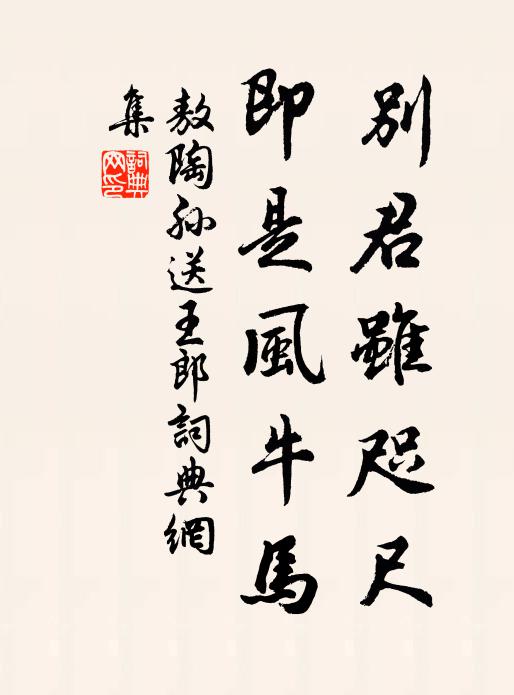 別君雖咫尺
即是風牛馬
敖陶孫送王郎詞典網
集
詞典網印